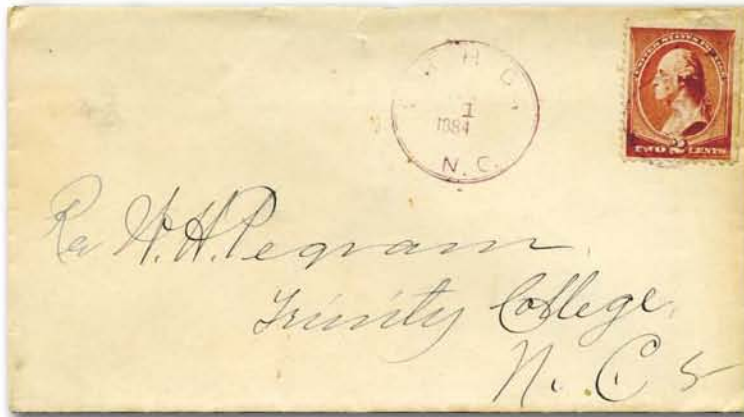 1
1884
N.C.
UNITED STATES
TWO 2 CENTS
W. H. Pegram.
Trinity College,
N. C